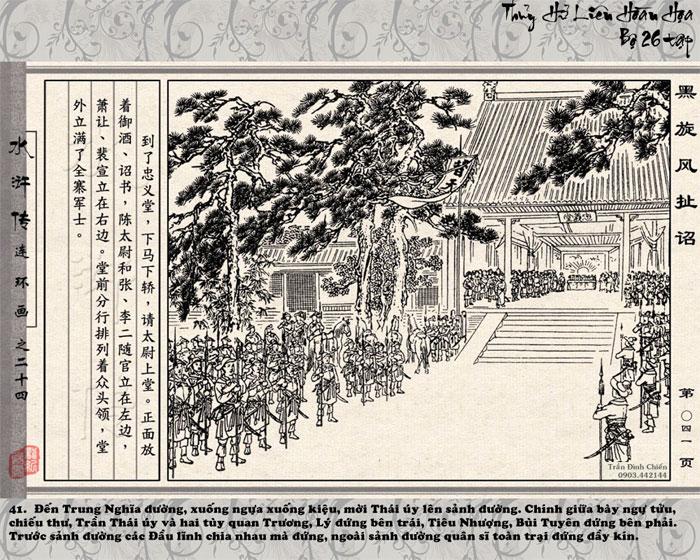 Thủy Hử Liên Hoàn Họa
Bộ 26 tập
水浒传 连环画 之二十四
黑旋风扯诏
第〇四一页
到了忠义堂，下马下轿，请太尉上堂。正面放
着御酒、诏书，陈太尉和张、李二随官立在左边，
萧让、裴宣立在右边。堂前分行排列着众头领，堂
外立满了全寨军士。
忠义堂
Trần Đình Chiến
0903.442144
41. Đến Trung Nghĩa đường, xuống ngựa xuống kiệu, mời Thái úy lên sảnh đường. Chính giữa bày ngự tửu,
chiếu thư, Trần Thái úy và hai tùy quan Trương, Lý đứng bên trái, Tiêu Nhượng, Bùi Tuyên đứng bên phải.
Trước sảnh đường các Đầu lĩnh chia nhau mà đứng, ngoài sảnh đường quân sĩ toàn trại đứng đầy kín.